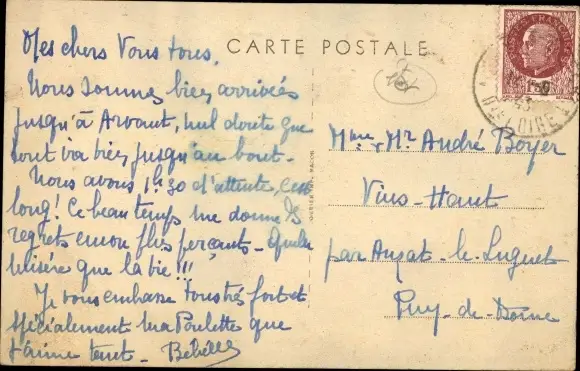 Mes chers Vous tous,
Nous sommes bien arrivées
jusqu'à Arvant, nul doute que
tout va bien jusqu'au bout.
Nous avons 1h30 d'attente, c'est
long! Ce beau temps me donne des
regrets encore plus perçants - Quelle
misère que la vie!!!
Je vous embrasse tous très fort et
spécialement ma Poulette que
j'aime tant - Bébelle
CARTE POSTALE
Mme & Mr André Boyer
Vins-Haut
par Anzat-le-Luguet
Puy-de-Dome
1F50